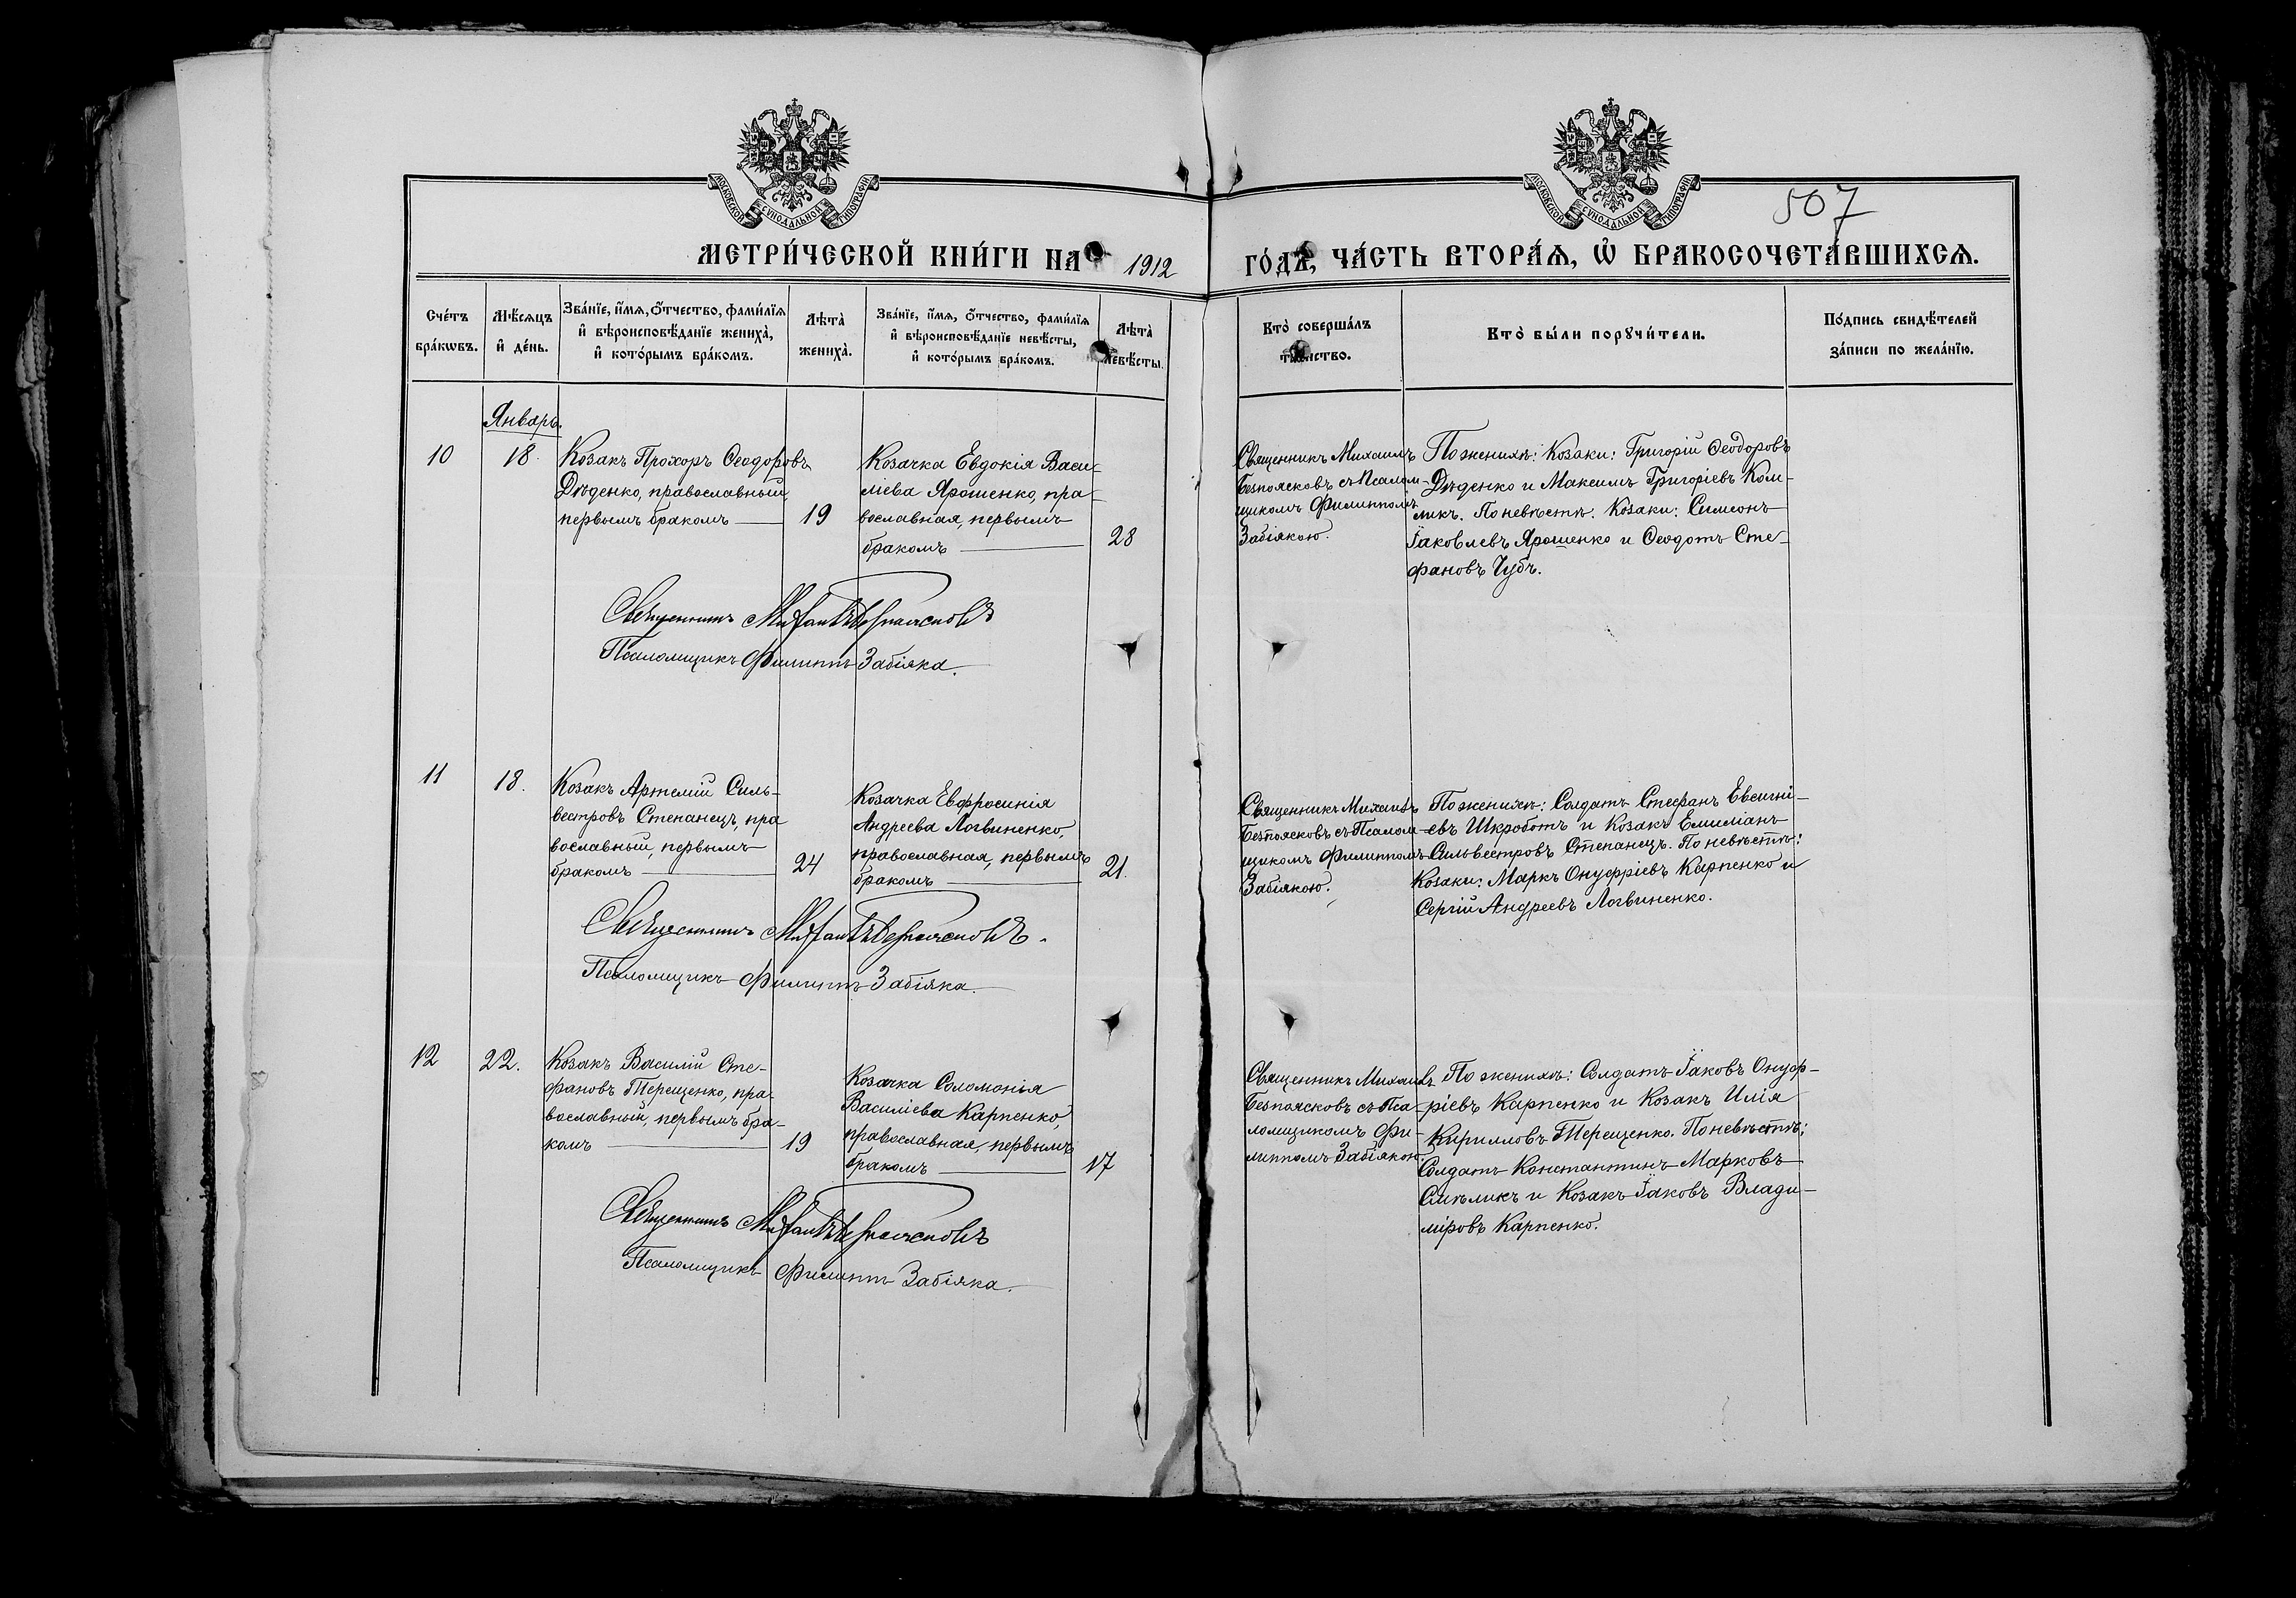 МОСКОВСКОЙ СѴНОДАЛЬНОЙ ТИПОГРАФІИ
МОСКОВСКОЙ СѴНОДАЛЬНОЙ ТИПОГРАФІИ
507
МЕТРИ́ЧЕСКОЙ КНИ́ГИ НА 1912
ГО́ДЪ, ЧА́СТЬ ВТОРА́Ѧ, Ѡ҆ БРАКОСОЧЕТА́ВШИХСѦ.
Сче́тъ
бра́кѡвъ.
Мѣ́сѧцъ
и҆ де́нь.
Зва́нїе, и҆́мѧ, ѻ҆́тчество, фами́лїѧ
и҆ вѣроисповѣ́данїе жениха̀,
и҆ кото́рымъ бра́комъ.
Лѣта̀
жениха̀.
Зва́нїе, и҆́мѧ, ѻ҆́тчество, фами́лїѧ
и҆ вѣроисповѣ́данїе невѣ́сты,
и҆ кото́рымъ бра́комъ.
Лѣта̀
невѣ́сты.
Кто̀ соверша́лъ
та́инство.
Кто̀ бы́ли порꙋчи́тели.
По́дпись свидѣ́телей
за́писи по жела́нїю.
Январь.
10
18.
Козакъ Прохоръ Ѳеодоровъ
Дѣденко, православный,
первымъ бракомъ
19
Козачка Евдокія Васи-
ліева Ярошенко, пра-
вославная, первымъ
бракомъ
28
Священникъ Михаилъ
Безпоясковъ съ Псалом-
щикомъ Филиппомъ
Забіякою.
По женихѣ: Козаки: Григорій Ѳеодоровъ
Дѣденко и Максимъ Григоріевъ Ком-
ликъ. По невѣстѣ: Козаки: Симеонъ
Іаковлевъ Ярошенко и Ѳеодотъ Сте-
фановъ Чубъ.
Священникъ Михаилъ Безпоясковъ
Псаломщикъ Филиппъ Забіяка.
11
18.
Козакъ Артемій Силь-
вестровъ Степанецъ, пра
вославный, первымъ
бракомъ
24
Козачка Евфросинія
Андреева Логвиненко,
православная, первымъ
бракомъ
21.
Священникъ Михаилъ
Безпоясковъ съ Псалом-
щикомъ Филиппомъ
Забіякою.
По женихѣ: Солдатъ Стефанъ Евсигні-
евъ Шкроботъ и Козакъ Емиліанъ
Сильвестровъ Степанецъ. По невѣстѣ:
Козаки: Маркъ Онуфріевъ Карпенко и
Сергій Андреевъ Логвиненко.
Священникъ Михаилъ Безпоясковъ.
Псаломщикъ Филиппъ Забіяка.
12
22.
Козакъ Василій Сте-
фановъ Терещенко, пра-
вославный, первымъ бра-
комъ
19
Козачка Соломонія
Василіева Карпенко,
православная, первымъ
бракомъ
17
Священникъ Михаилъ
Безпоясковъ съ Пса-
ломщикомъ Фи-
липпомъ Забіякою.
По женихѣ: Солдатъ Іаковъ Онуф-
ріевъ Карпенко и Козакъ Илія
Кирилловъ Терещенко. По невѣстѣ:
Солдатъ Константинъ Марковъ
Смѣликъ и Козакъ Іаковъ Влади-
міровъ Карпенко.
Священникъ Михаилъ Безпоясковъ
Псаломщикъ Филиппъ Забіяка.